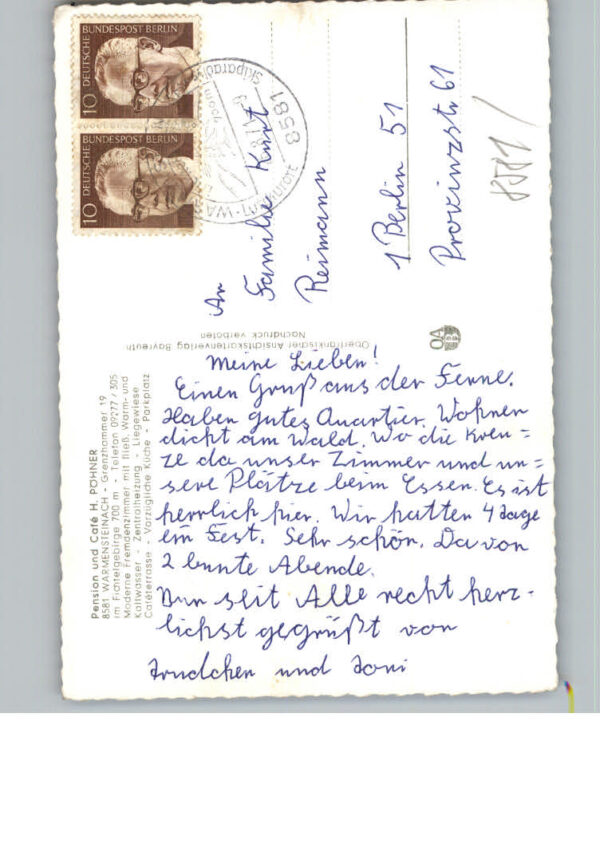 DEUTSCHE BUNDESPOST BERLIN
10
DEUTSCHE BUNDESPOST BERLIN
10
8581
Skiparadies
An
Familie Kurt
Reimann
1 Berlin 51
Provinzstr 61
8581
Oberfränkischer Ansichtskartenverlag Bayreuth
Nachdruck verboten
OA
Pension und Café H. PÖHNER
8581 WARMENSTEINACH - Grenzhammer 19
im Fichtelgebirge 700 m - Telefon 09277 / 305
Moderne Fremdenzimmer mit fließ. Warm- und
Kaltwasser - Zentralheizung - Liegewiese
Caféterrasse - Vorzügliche Küche - Parkplatz
Meine Lieben!
Einen Gruß aus der Ferne.
Haben gutes Quartier. Wohnen
dicht am Wald. Wo die Kreu=
ze da unser Zimmer und un=
sere Plätze beim Essen. Es ist
herrlich hier. Wir hatten 4 Tage
ein Fest. Sehr schön. Davon
2 bunte Abende.
Nun seit Alle recht herz-
lichst gegrüßt von
Trudchen und Toni